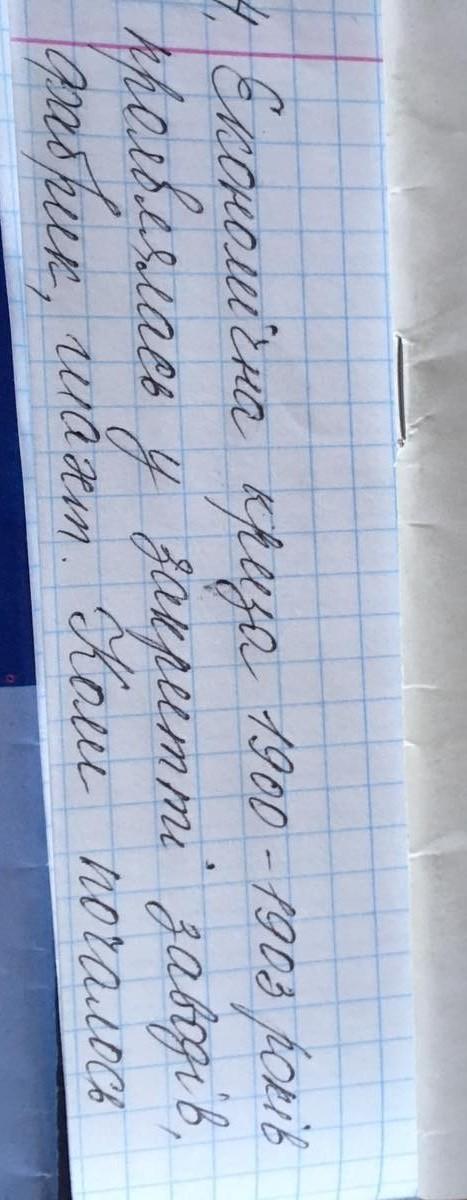 4. Економічна криза 1900-1903 років
проявлялась у закритті заводів,
фабрик, шахт. Коли почалось